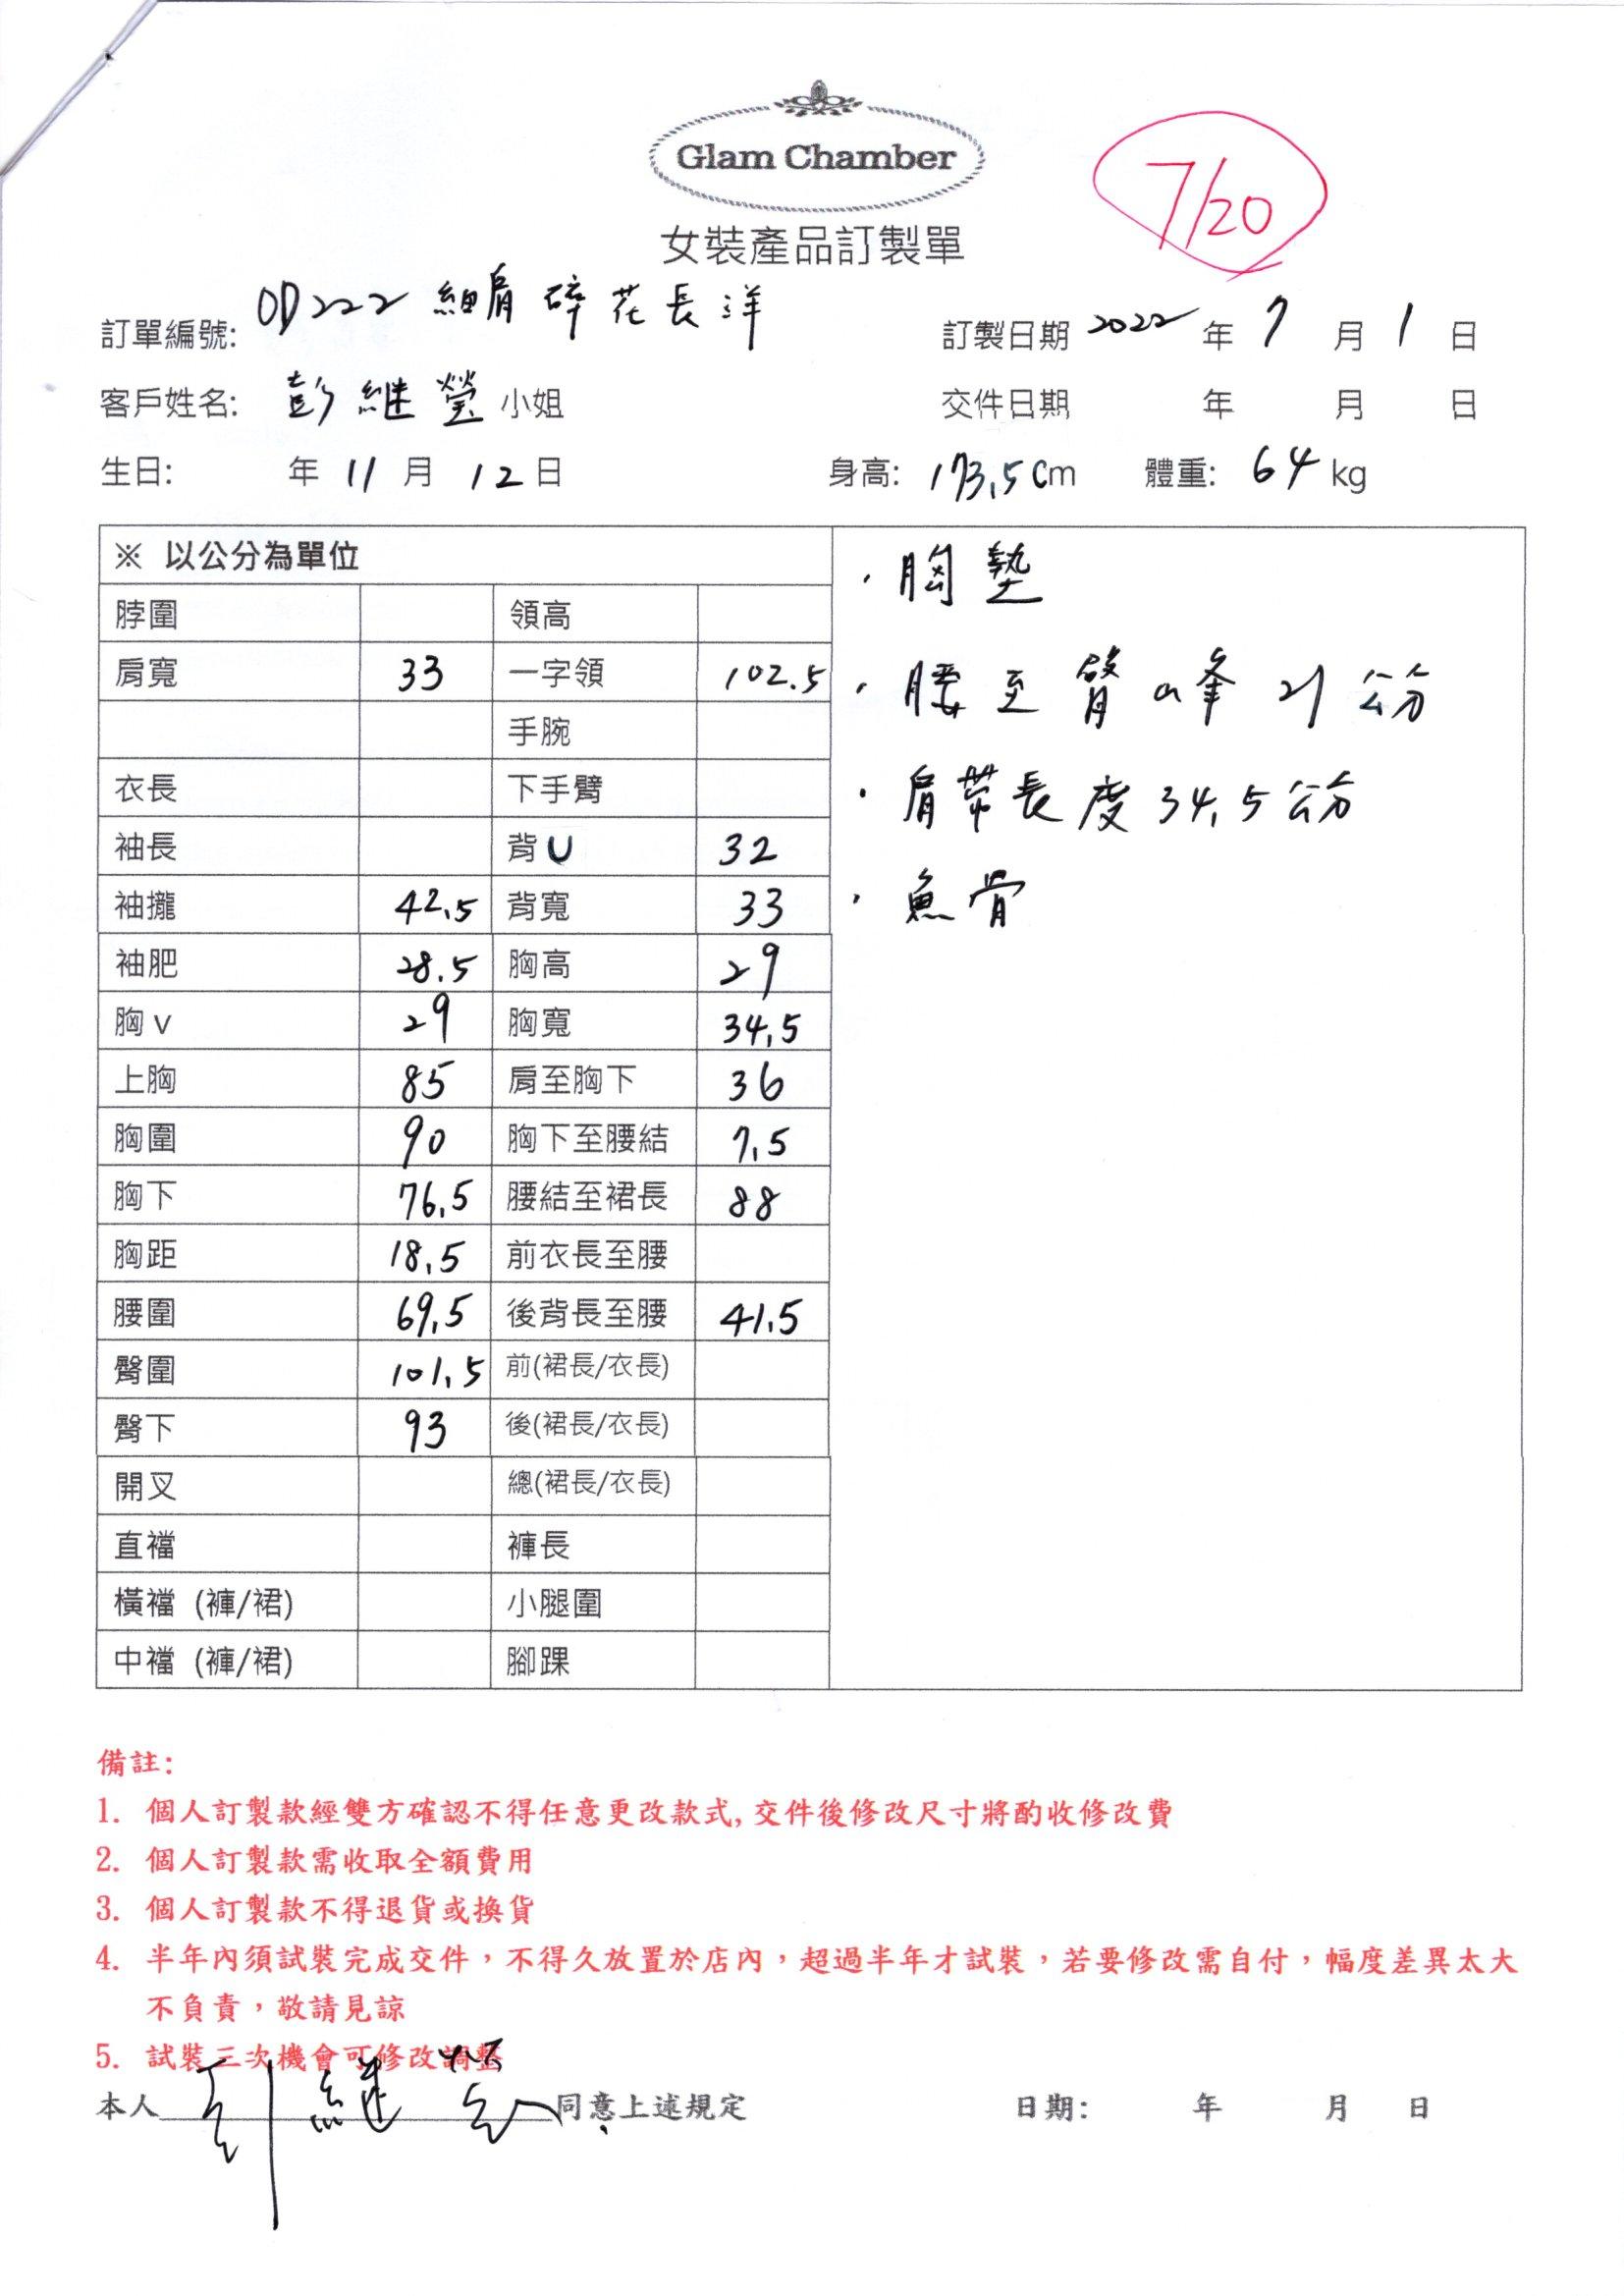 Glam Chamber
7/20
女裝產品訂製單
訂單編號: OD222 細肩碎花長洋
訂製日期 2022 年 7 月 1 日
客戶姓名: 彭継瑩 小姐
交件日期 年 月 日
生日: 年 11 月 12 日 身高: 173.5 cm 體重: 64 kg
※ 以公分為單位
脖圍 領高
肩寬 33 一字領 102.5
手腕
衣長 下手臂
袖長 背U 32
袖攏 42.5 背寬 33
袖肥 28.5 胸高 29
胸v 29 胸寬 34.5
上胸 85 肩至胸下 36
胸圍 90 胸下至腰結 7.5
胸下 76.5 腰結至裙長 88
胸距 18.5 前衣長至腰
腰圍 69.5 後背長至腰 41.5
臀圍 101.5 前(裙長/衣長)
臀下 93 後(裙長/衣長)
開叉 總(裙長/衣長)
直襠 褲長
橫襠 (褲/裙) 小腿圍
中襠 (褲/裙) 腳踝
· 胸墊
· 腰至臀高峯 21 公分
· 肩帶長度 34.5 公分
· 魚骨
備註:
1. 個人訂製款經雙方確認不得任意更改款式,交件後修改尺寸將酌收修改費
2. 個人訂製款需收取全額費用
3. 個人訂製款不得退貨或換貨
4. 半年內須試裝完成交件，不得久放置於店內，超過半年才試裝，若要修改需自付，幅度差異太大
不負責，敬請見諒
5. 試裝三次機會可修改調整
本人 彭継瑩 同意上述規定 日期: 年 月 日